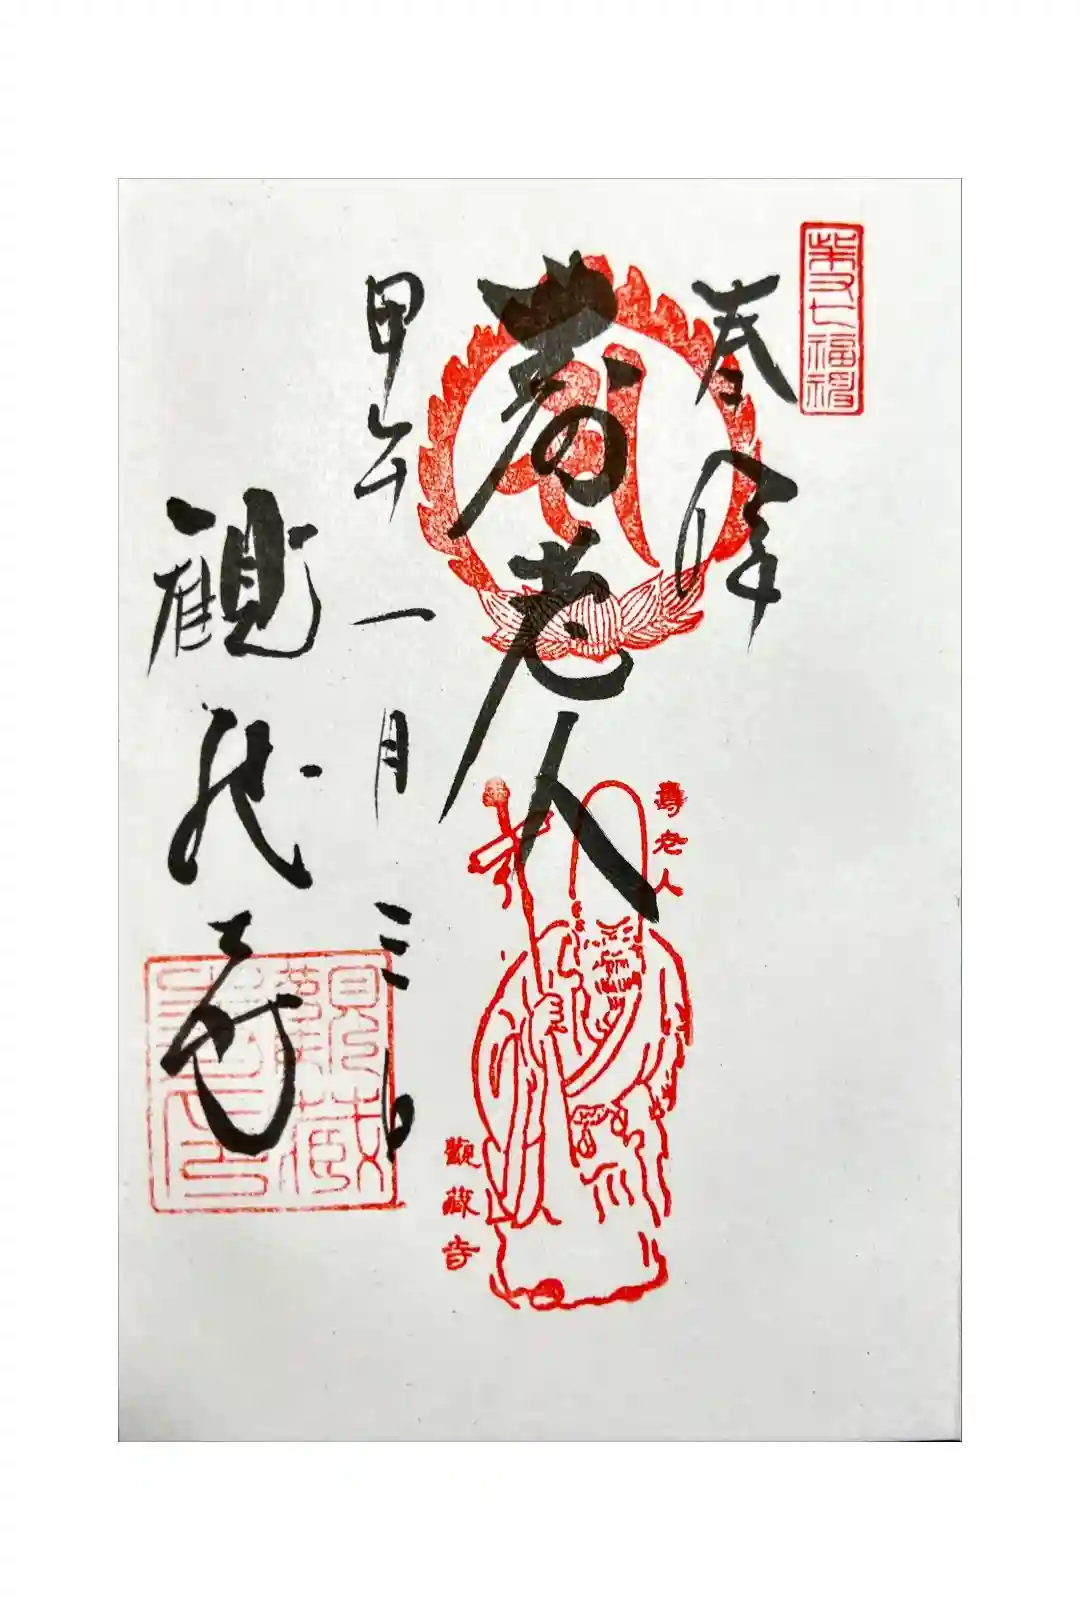 柴又七福神
奉拝
寿老人
壽老人
甲午一月三日
観蔵寺
觀藏寺
觀蔵寺印